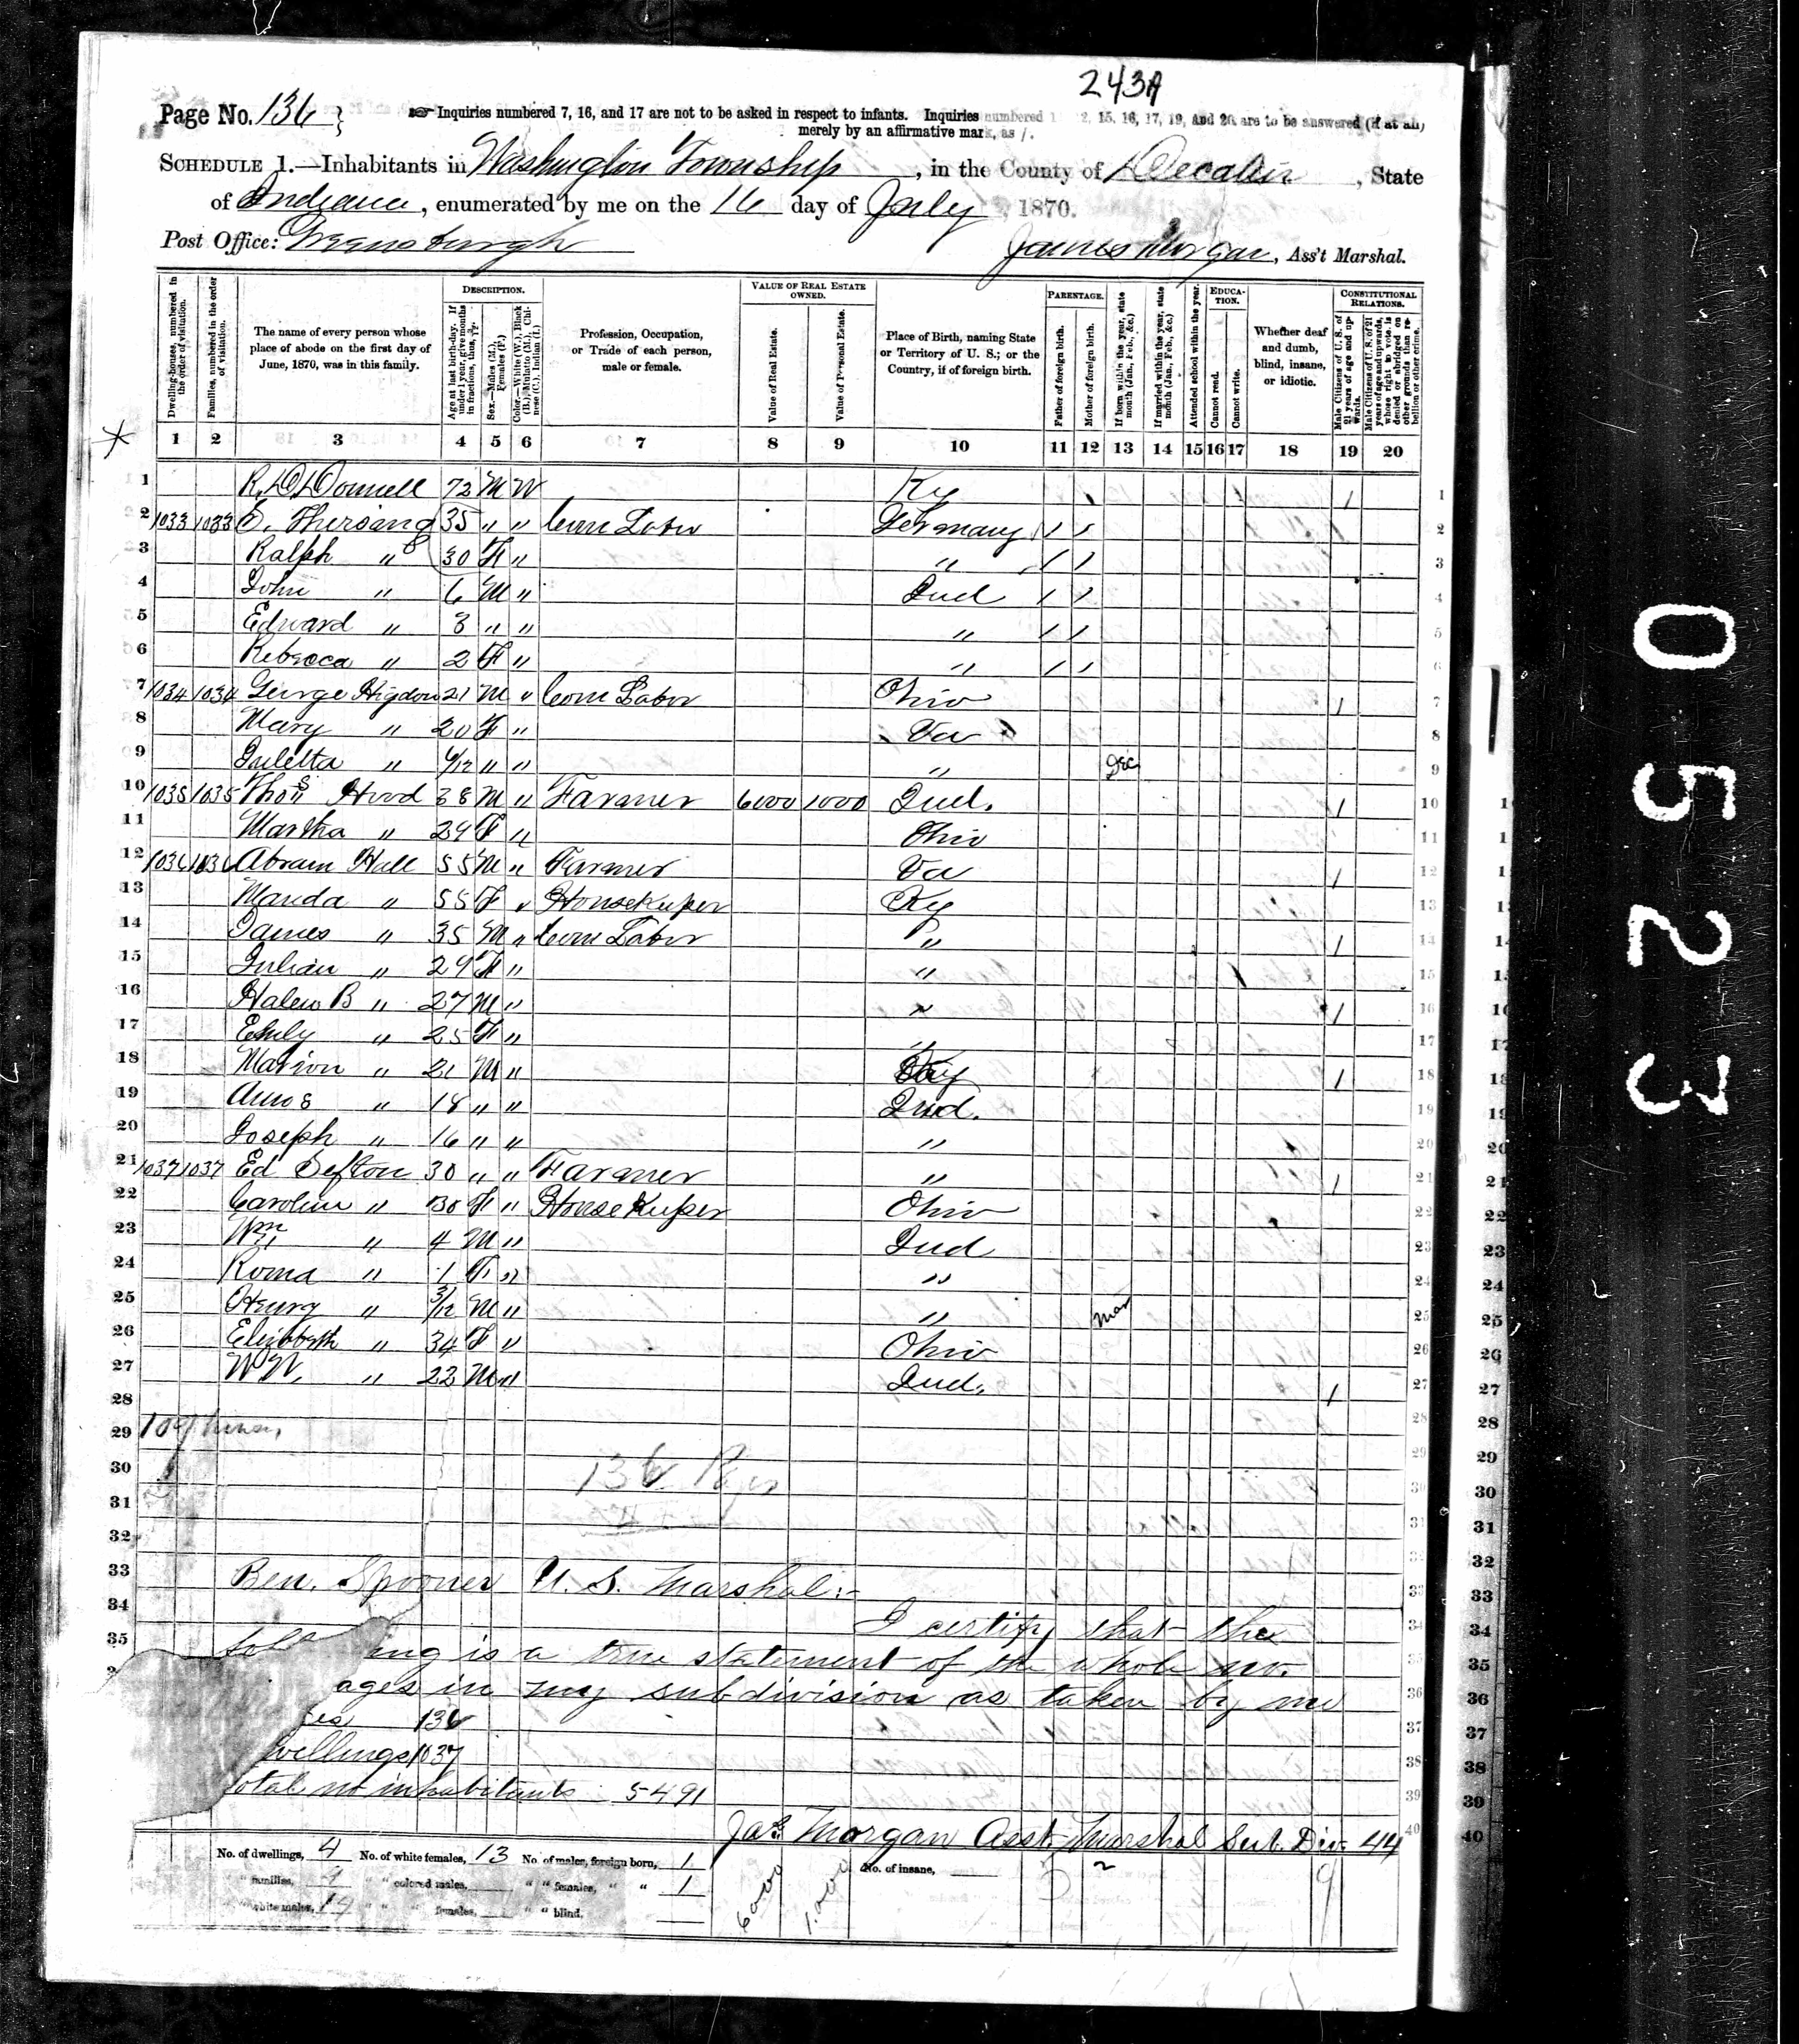 243A
Page No. 136 } ☞ Inquiries numbered 7, 16, and 17 are not to be asked in respect to infants. Inquiries numbered 1 2, 15, 16, 17, 19, and 20 are to be answered (if at all)
merely by an affirmative mark, as /.
SCHEDULE 1.—Inhabitants in Washington Township, in the County of Decatur, State
of Indiana, enumerated by me on the 16 day of July, 1870.
Post Office: Greensburgh James Morgan, Ass't Marshal.
Dwelling-houses, numbered in the order of visitation.
Families, numbered in the order of visitation.
The name of every person whose place of abode on the first day of June, 1870, was in this family.
DESCRIPTION.
Age at last birth-day. If under 1 year, give months in fractions, thus, 3/12
Sex.—Males (M.), Females (F.)
Color.—White (W.), Black (B.), Mulatto (M.), Chinese (C.), Indian (I.)
Profession, Occupation, or Trade of each person, male or female.
VALUE OF REAL ESTATE OWNED.
Value of Real Estate.
Value of Personal Estate.
Place of Birth, naming State or Territory of U. S.; or the Country, if of foreign birth.
PARENTAGE.
Father of foreign birth.
Mother of foreign birth.
If born within the year, state month (Jan., Feb., &c.)
If married within the year, state month (Jan., Feb., &c.)
Attended school within the year.
EDUCATION.
Cannot read.
Cannot write.
Whether deaf and dumb, blind, insane, or idiotic.
CONSTITUTIONAL RELATIONS.
Male Citizens of U. S. of 21 years of age and upwards.
Male Citizens of U. S. of 21 years of age and upwards, whose right to vote is denied or abridged on other grounds than rebellion or other crime.
1 2 3 4 5 6 7 8 9 10 11 12 13 14 15 16 17 18 19 20
1 R. D. Donnell 72 M W Ky / 1
2 1033 1033 35 " " Com Labor Germany / / 2
3 Ralph " 30 F " " / / 3
4 John " 6 M " Ind / / 4
5 Edward " 3 " " " / / 5
6 Rebecca " 2 F " " / / 6
7 1034 1034 George Higdon 21 M " Com Labor Ohio / 7
8 Mary " 20 F " Va 8
9 Juletta " 6/12 " " " Dec 9
10 1035 1035 Thos Hood 38 M " Farmer 6000 1000 Ind. / 10
11 Martha " 29 F " Ohio 11
12 1036 1036 Abram Hall 55 M " Farmer Va / 12
13 Manda " 55 F " Housekeeper Ky 13
14 James " 35 M " Com Labor " / 14
15 Julian " 29 F " " 15
16 B " 27 M " " / 16
17 Emily " 25 F " " 17
18 Marion " 21 M " Ky / 18
19 Amos " 18 " " Ind. 19
20 Joseph " 16 " " " 20
21 1037 1037 Ed Sefton 30 " " Farmer " / 21
22 Caroline " 30 F " House Keeper Ohio 22
23 Wm " 4 M " Ind 23
24 Roma " 1 F " " 24
25 Henry " 3/12 M " " Mar 25
26 Elizabeth " 34 F " Ohio 26
27 W W. " 22 M " Ind. / 27
28
29
30 136 Pages
31
32
33 Ben. Spooner U. S. Marshal:-
34 I certify that the
35 foll ing is a true statement of the whole no.
ages in my subdivision as taken by me 36
es 136 37
wellings 1037 38
otal no inhabitants 5491 39
Jas. Morgan Asst. Marshal Sub. Div. 44 40
No. of dwellings, 4 No. of white females, 13 No. of males, foreign born, 1 No. of insane,
" families, 4 " " colored males, " " females, " " 1
" white males, 14 " " " females, " " blind, 6000 1,000 9
0523